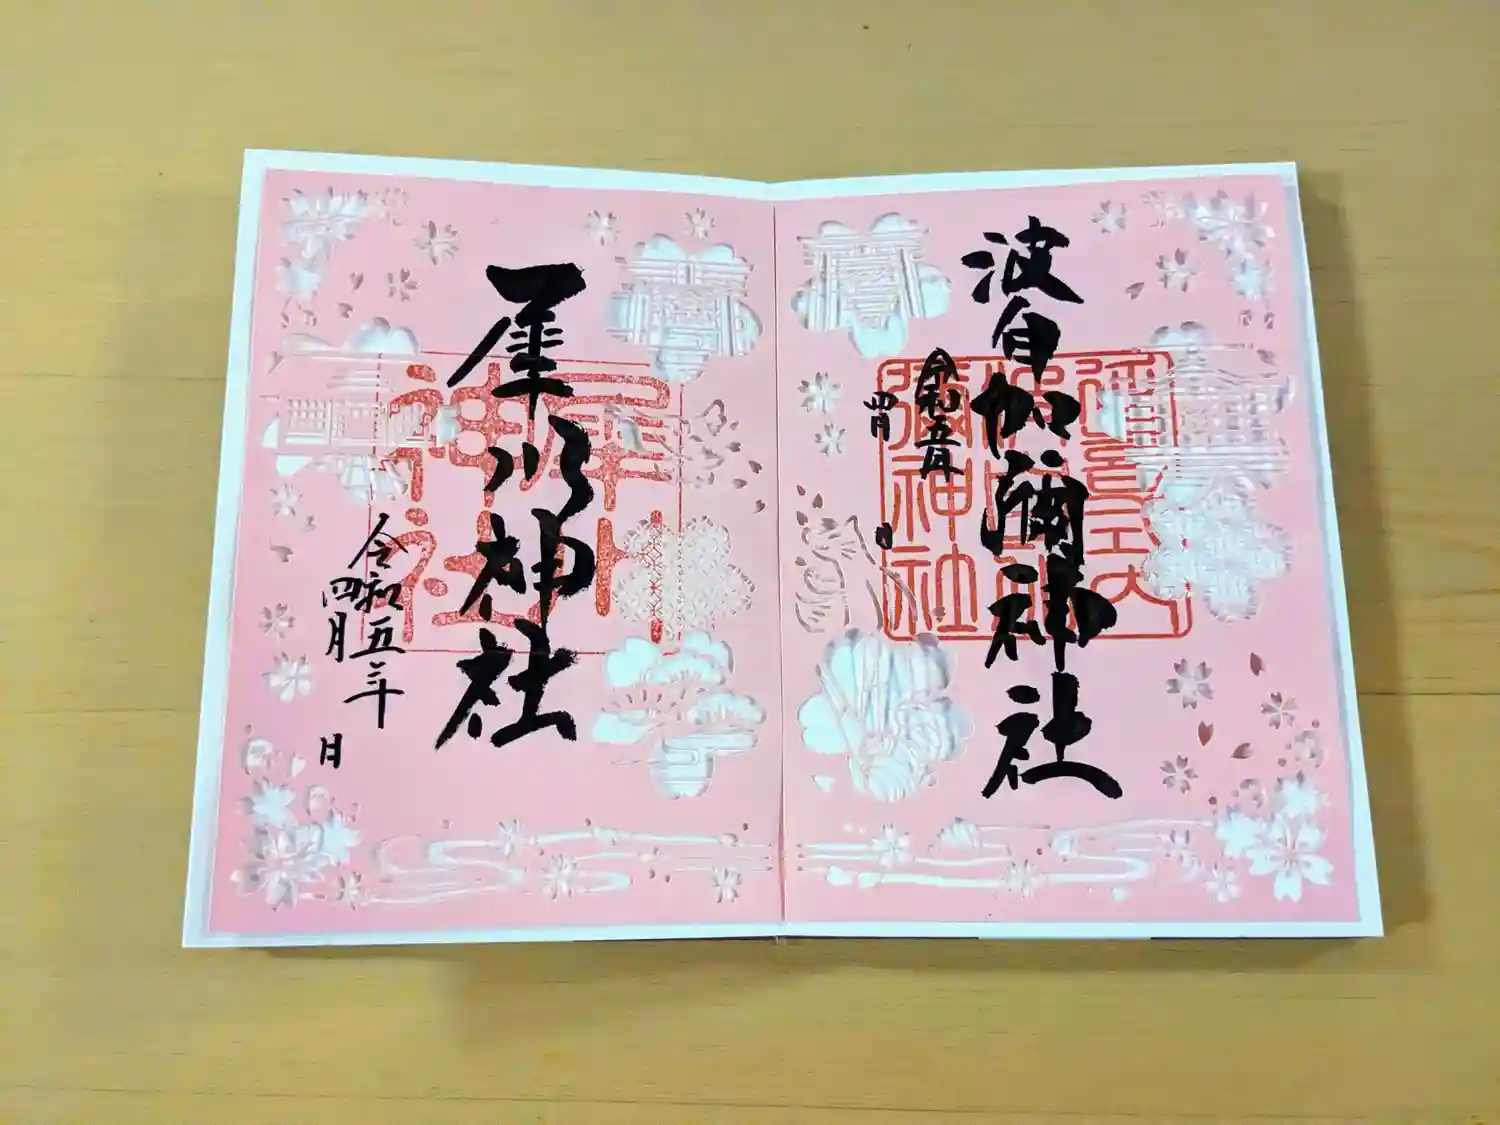 波自加彌神社
令和五年
四月
日
延喜式内
波自加
彌神社
犀川神社
令和五年
四月
日
犀川
神社